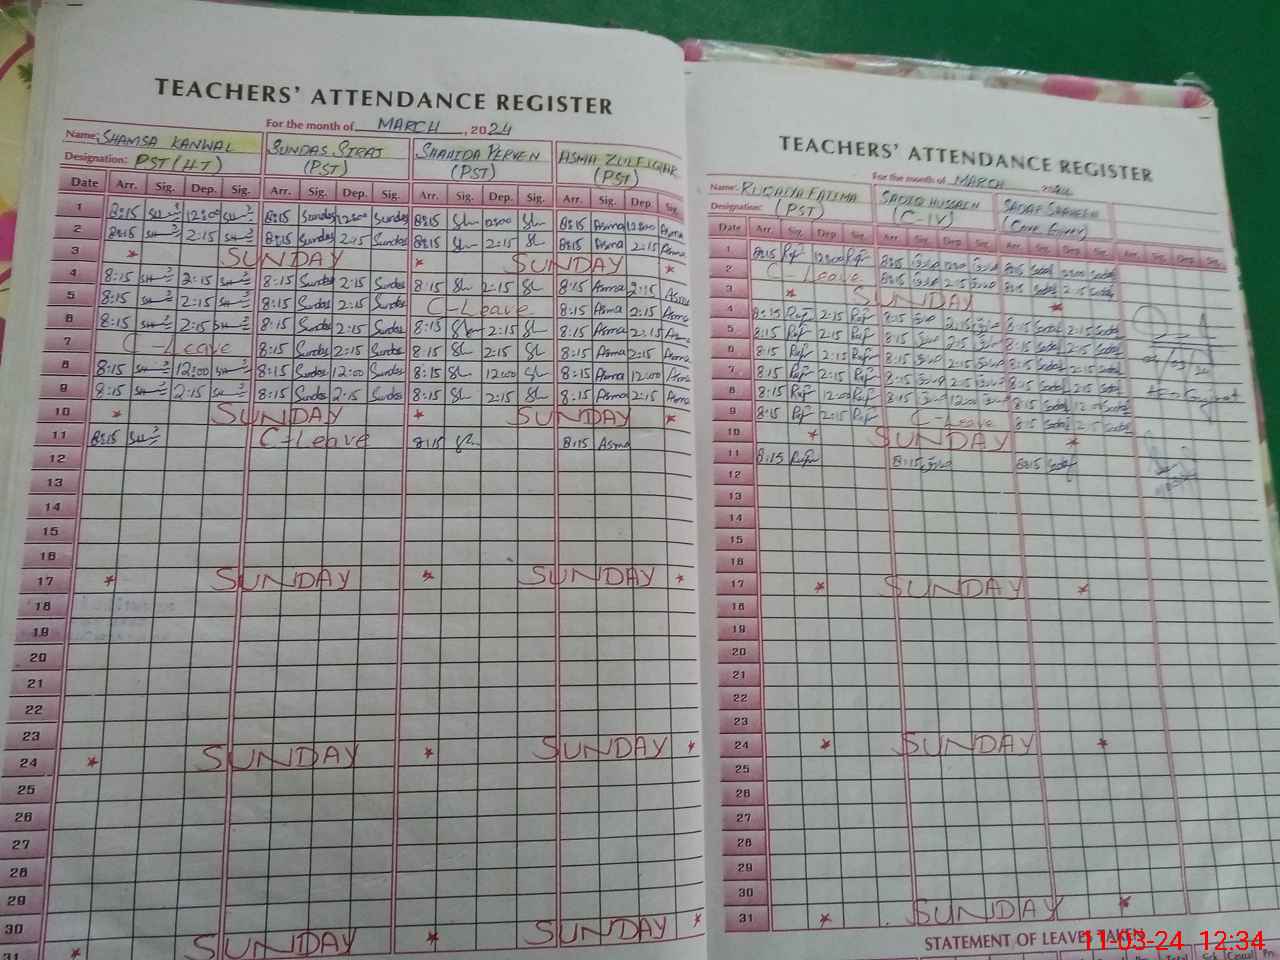 TEACHERS' ATTENDANCE REGISTER
For the month of MARCH, 2024
Name: SHAMSA KANWAL SUNDAS SIRAJ SHAHIDA PERVEN ASMA ZULFIQAR
Designation: PST (H.T) (PST) (PST) (PST)
Date Arr. Sig. Dep. Sig. Arr. Sig. Dep. Sig. Arr. Sig. Dep. Sig. Arr. Sig. Dep. Sig.
1 8:15 12:00 8:15 Sundas 12:00 Sundas 8:15 12:00 8:15 Asma 12:00 Asma
2 8:15 2:15 8:15 Sundas 2:15 Sundas 8:15 2:15 8:15 Asma 2:15 Asma
3 * SUNDAY * SUNDAY *
4 8:15 2:15 8:15 Sundas 2:15 Sundas 8:15 2:15 8:15 Asma 2:15 Asma
5 8:15 2:15 8:15 Sundas 2:15 Sundas C-Leave 8:15 Asma 2:15 Asma
6 8:15 2:15 8:15 Sundas 2:15 Sundas 8:15 2:15 8:15 Asma 2:15 Asma
7 C-Leave 8:15 Sundas 2:15 Sundas 8:15 2:15 8:15 Asma 2:15 Asma
8 8:15 12:00 8:15 Sundas 12:00 Sundas 8:15 12:00 8:15 Asma 12:00 Asma
9 8:15 2:15 8:15 Sundas 2:15 Sundas 8:15 2:15 8:15 Asma 2:15 Asma
10 * SUNDAY * SUNDAY *
11 8:15 C-Leave 8:15 8:15 Asma
12
13
14
15
16
17 * SUNDAY * SUNDAY *
18
19
20
21
22
23
24 * SUNDAY * SUNDAY *
25
26
27
28
29
30
31 * SUNDAY * SUNDAY *
TEACHERS' ATTENDANCE REGISTER
For the month of MARCH 2024
Name: RUQAIYA FATIMA SADIQ HUSSAIN SADAF SHAHEEN
Designation: (PST) (C-IV) (Care Giver)
Date Arr. Sig. Dep. Sig. Arr. Sig. Dep. Sig. Arr. Sig. Dep. Sig. Arr. Sig. Dep. Sig.
1 8:15 12:00 8:15 12:00 8:15 Sadaf 12:00 Sadaf
2 C-Leave 8:15 2:15 8:15 Sadaf 2:15 Sadaf
3 * SUNDAY *
4 8:15 2:15 8:15 2:15 8:15 Sadaf 2:15 Sadaf
5 8:15 2:15 8:15 2:15 8:15 Sadaf 2:15 Sadaf
6 8:15 2:15 8:15 2:15 8:15 Sadaf 2:15 Sadaf
7 8:15 2:15 8:15 2:15 8:15 Sadaf 2:15 Sadaf
8 8:15 12:00 8:15 12:00 8:15 Sadaf 12:00 Sadaf
9 8:15 2:15 C-Leave 8:15 Sadaf 2:15 Sadaf
10 * SUNDAY *
11 8:15 8:15 8:15 Sadaf
12
13
14
15
16
17 * SUNDAY *
18
19
20
21
22
23
24 * SUNDAY *
25
26
27
28
29
30
31 * SUNDAY *
STATEMENT OF LEAVE TAKEN
11-03-24 12:34